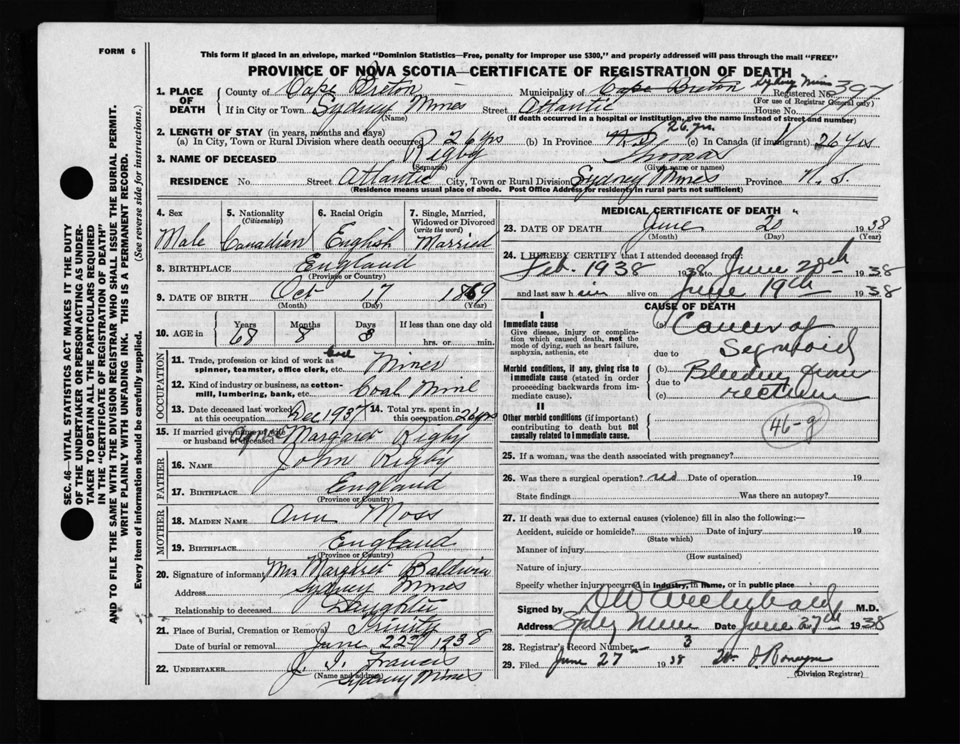 FORM 6
This form if placed in an envelope, marked "Dominion Statistics—Free, penalty for improper use $300," and properly addressed will pass through the mail "FREE"
PROVINCE OF NOVA SCOTIA—CERTIFICATE OF REGISTRATION OF DEATH
1. PLACE OF DEATH County of Cape Breton Municipality of Cape Breton Sydney Mines Registered No. 397
(For use of Registrar General only)
If in City or Town Sydney Mines Street Atlantic House No.
(Name) (If death occurred in a hospital or institution, give the name instead of street and number)
2. LENGTH OF STAY (in years, months and days)
(a) In City, Town or Rural Division where death occurred 26 yrs (b) In Province 26 yrs. (c) In Canada (if immigrant) 26 Yrs
3. NAME OF DECEASED Rigby Thomas
(Surname) (Given name or names)
RESIDENCE No. Street Atlantic City, Town or Rural Division Sydney Mines Province N. S.
(Residence means usual place of abode. Post Office Address for residents in rural parts not sufficient)
4. Sex Male
5. Nationality (Citizenship) Canadian
6. Racial Origin English
7. Single, Married, Widowed or Divorced (write the word) Married
8. BIRTHPLACE England
(Province or Country)
9. DATE OF BIRTH Oct 17 1869
(Month) (Day) (Year)
10. AGE in Years 68 Months 8 Days 3 If less than one day old hrs. or min.
OCCUPATION
11. Trade, profession or kind of work as spinner, teamster, office clerk, etc. Coal Miner
12. Kind of industry or business, as cotton-mill, lumbering, bank, etc. Coal Mine
13. Date deceased last worked at this occupation Dec 1937 14. Total yrs. spent in this occupation 26 yrs
15. If married give name of wife or husband of deceased Margaret Rigby
FATHER
16. NAME John Rigby
17. BIRTHPLACE England
(Province or Country)
MOTHER
18. MAIDEN NAME Ann Moss
19. BIRTHPLACE England
(Province or Country)
20. Signature of informant Mrs Margaret Baldwin
Address Sydney Mines
Relationship to deceased Daughter
21. Place of Burial, Cremation or Removal Trinity
Date of burial or removal June 22nd 1938
22. UNDERTAKER J. T. Francis
(Name and address)
Sydney Mines
MEDICAL CERTIFICATE OF DEATH
23. DATE OF DEATH June 20 1938
(Month) (Day) (Year)
24. I HEREBY CERTIFY that I attended deceased from:
Feb. 1938 1938 to June 20th 1938
and last saw him alive on June 19th 1938
CAUSE OF DEATH
I
Immediate cause
Give disease, injury or complication which caused death, not the mode of dying, such as heart failure, asphyxia, asthenia, etc
(a) Cancer of Segmoid
due to
Morbid conditions, if any, giving rise to immediate cause (stated in order proceeding backwards from immediate cause).
(b) Bleeding from rectum
due to
(c)
II
Other morbid conditions (if important) contributing to death but not causally related to immediate cause.
46-g
25. If a woman, was the death associated with pregnancy?
26. Was there a surgical operation? no Date of operation 19
State findings Was there an autopsy?
27. If death was due to external causes (violence) fill in also the following:—
Accident, suicide or homicide? Date of injury 19
(State which)
Manner of injury
(How sustained)
Nature of injury
Specify whether injury occurred in industry, in home, or in public place
Signed by Archibald M.D.
Address Date June 27th 1938
28. Registrar's Record Number 3
29. Filed June 27 1938
(Division Registrar)
SEC. 46—VITAL STATISTICS ACT MAKES IT THE DUTY OF THE UNDERTAKER OR PERSON ACTING AS UNDERTAKER TO OBTAIN ALL THE PARTICULARS REQUIRED IN THE "CERTIFICATE OF REGISTRATION OF DEATH" AND TO FILE THE SAME WITH THE DIVISION REGISTRAR WHO SHALL ISSUE THE BURIAL PERMIT.
WRITE PLAINLY WITH UNFADING INK. THIS IS A PERMANENT RECORD.
Every item of information should be carefully supplied. (See reverse side for instructions.)